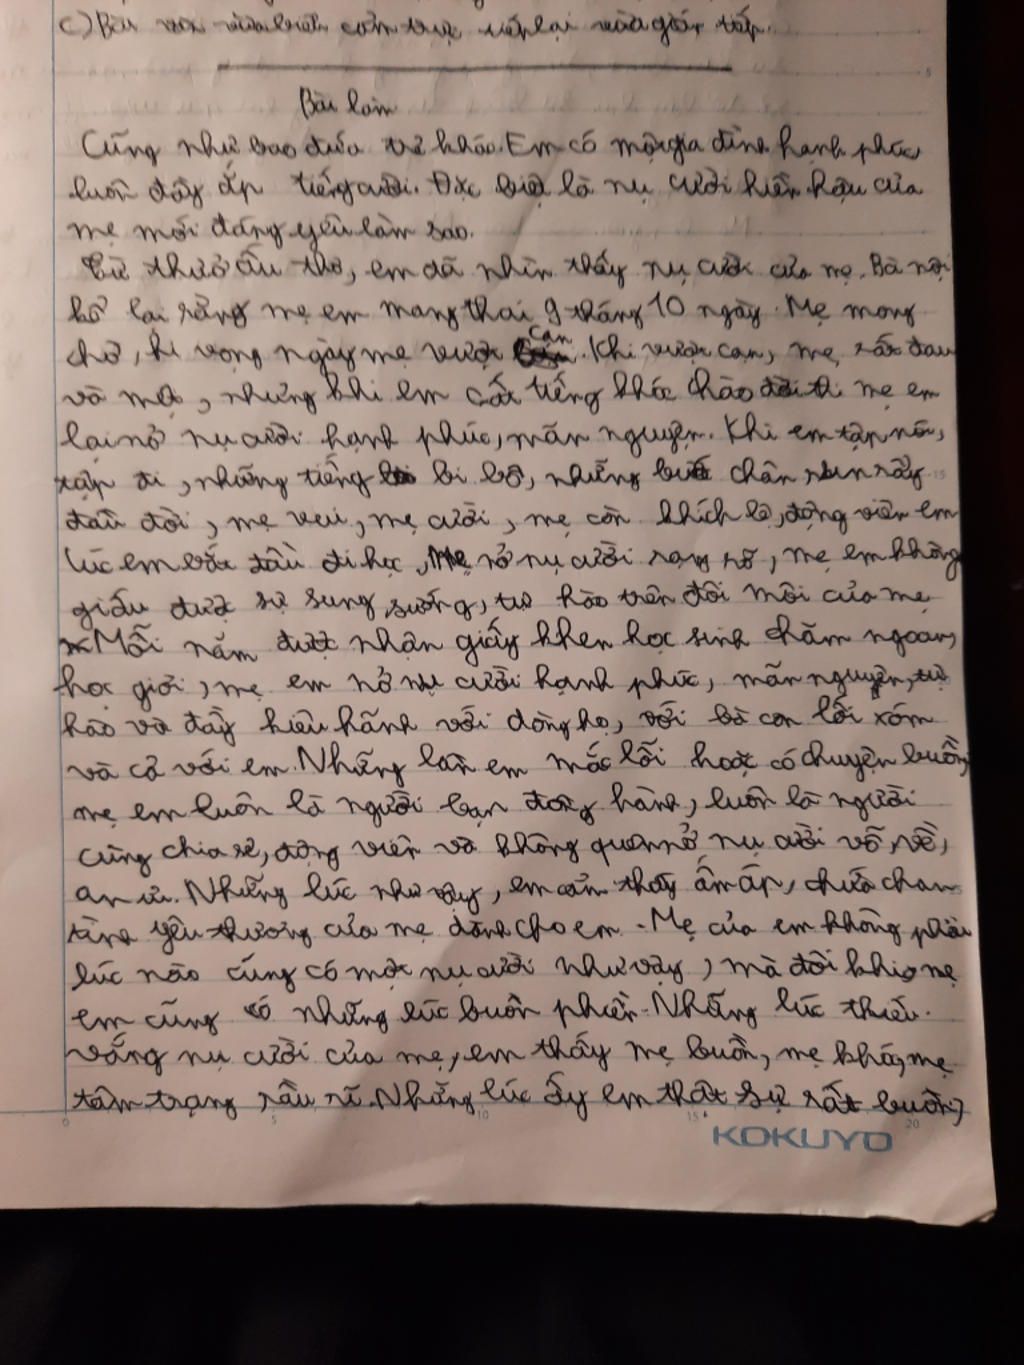 c) Bài văn vừa biểu cảm trực tiếp lại vừa gián tiếp.
Bài làm
Cũng như bao đứa trẻ khác. Em có một gia đình hạnh phúc,
luôn đầy ắp tiếng cười. Đặc biệt là nụ cười hiền hậu của
mẹ mới đáng yêu làm sao.
Từ thuở ấu thơ, em đã nhìn thấy nụ cười của mẹ. Bà nội
kể lại rằng mẹ em mang thai 9 tháng 10 ngày. Mẹ mong
chờ, hi vọng ngày mẹ vượt cạn. Khi vượt cạn, mẹ rất đau
và mệt, nhưng khi em cất tiếng khóc chào đời thì mẹ em
lại nở nụ cười hạnh phúc, mãn nguyện. Khi em tập nói,
tập đi, những tiếng bi bô, những bước chân run rẩy
đầu đời, mẹ vui, mẹ cười, mẹ còn khích lệ, động viên em
lúc em bắt đầu đi học, Mẹ nở nụ cười rạng rỡ, mẹ em không
giấu được sự sung sướng, tự hào trên đôi môi của mẹ
Mỗi năm được nhận giấy khen học sinh chăm ngoan,
học giỏi, mẹ em nở nụ cười hạnh phúc, mãn nguyện, tự
hào và đầy hiêu hãnh với dòng họ, với bà con lối xóm
và cả với em. Những lần em mắc lỗi hoặc có chuyện buồn,
mẹ em luôn là người bạn đồng hành, luôn là người
cùng chia sẻ, động viên và không quên nở nụ cười vỗ về,
an ủi. Những lúc như vậy, em cảm thấy ấm áp, chứa chan
tình yêu thương của mẹ dành cho em. Mẹ của em không phải
lúc nào cũng có một nụ cười như vậy, mà đôi khi mẹ
em cũng có những lúc buồn phiền. Những lúc thiếu
vắng nụ cười của mẹ, em thấy mẹ buồn, mẹ khóc, mẹ
tâm trạng rầu rĩ. Những lúc ấy em thật sự rất buồn,
0 5 10 15 20
KOKUYO